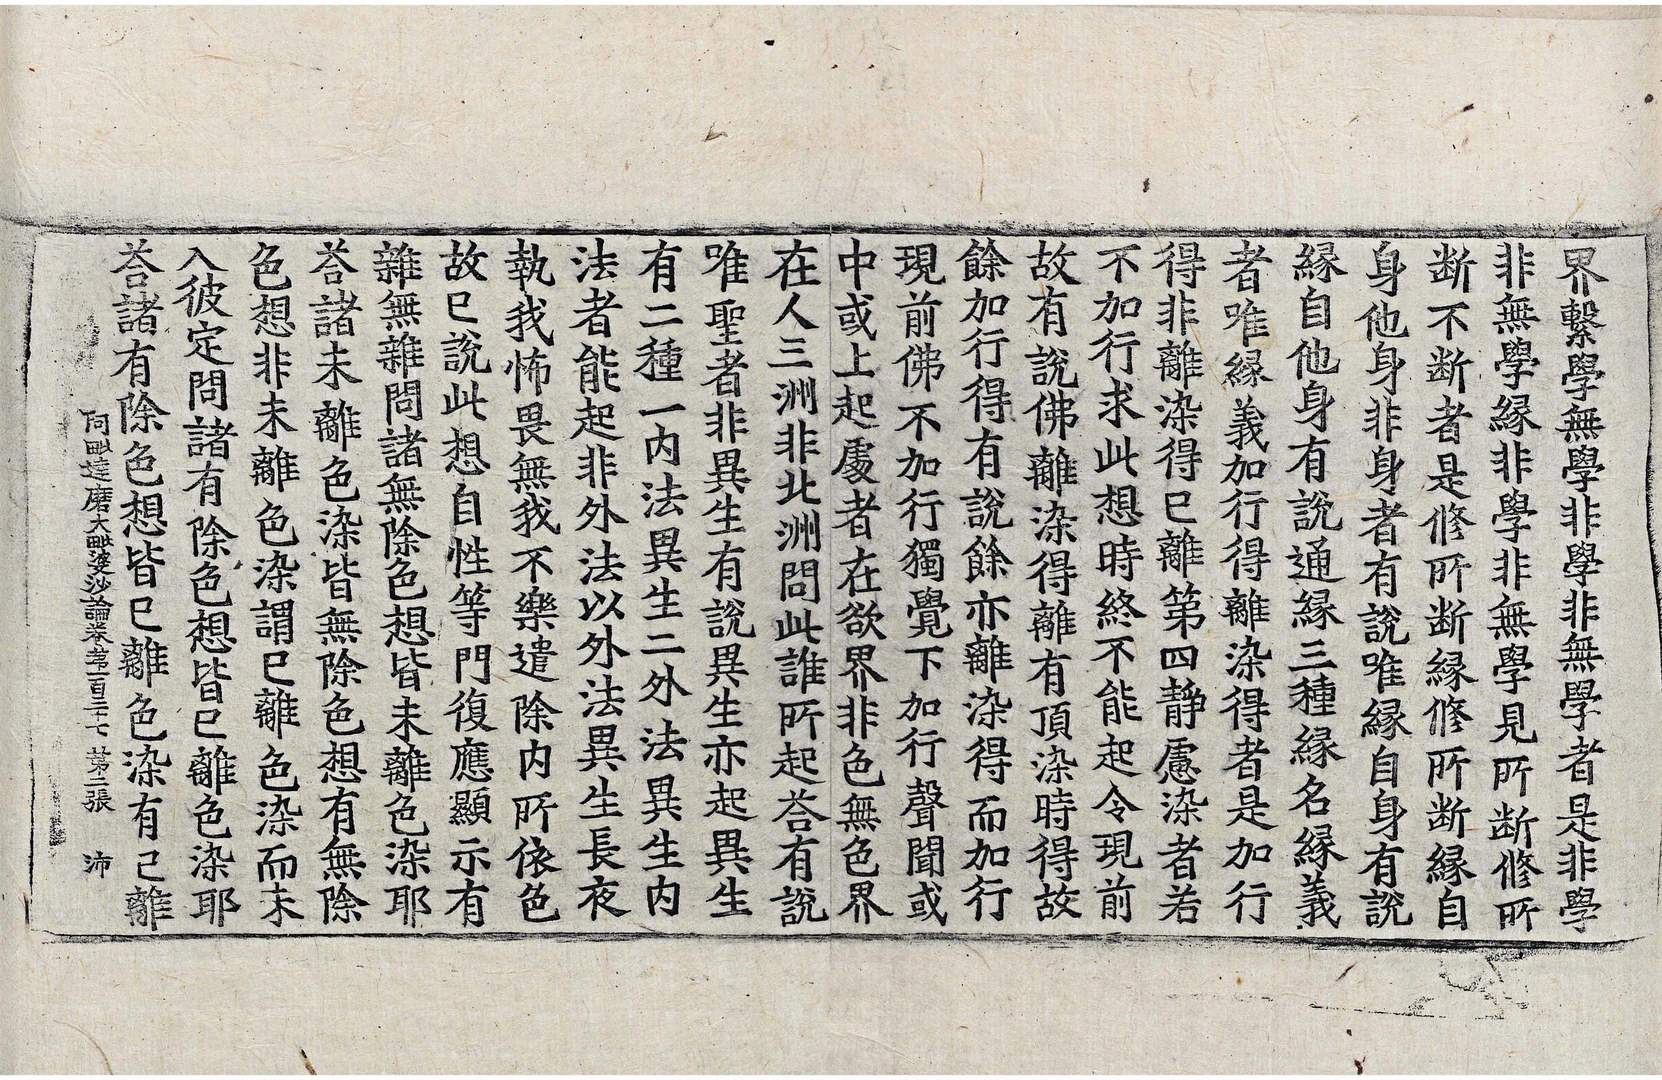 界繫學無學非學非無學者是非學
非無學緣非學非無學見所断修所
断不断者是修所断緣修所断緣自
身他身非身者有說唯緣自身有說
緣自他身有說通緣三種緣名緣義
者唯緣義加行得離染得者是加行
得非離染得已離第四靜慮染者若
不加行求此想時終不能起令現前
故有說佛離染得離有頂染時得故
餘加行得有說餘亦離染得而加行
現前佛不加行獨覺下加行聲聞或
中或上起處者在欲界非色無色界
在人三洲非北洲問此誰所起荅有說
唯聖者非異生有說異生亦起異生
有二種一內法異生二外法異生內
法者能起非外法以外法異生長夜
執我怖畏無我不樂遣除內所依色
故已說此想自性等門復應顯示有
雜無雜問諸無除色想皆未離色染耶
荅諸未離色染皆無除色想有無除
色想非未離色染謂已離色染而未
入彼定問諸有除色想皆已離色染耶
荅諸有除色想皆已離色染有已離
阿毗達磨大毗婆沙論卷第一百三十七 第三張 沛